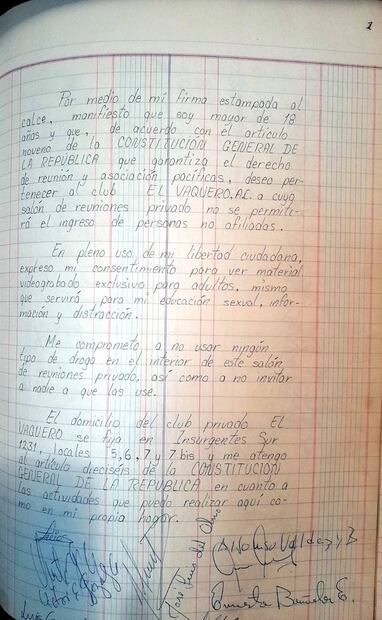 1
Por medio de mi firma estampada al
calce, manifiesto que soy mayor de 18
años y que, de acuerdo con el artículo
noveno de la CONSTITUCION GENERAL DE
LA REPUBLICA que garantiza el derecho
de reunión y asociación pacíficas, deseo per-
tenecer al club EL VAQUERO, A.C. a cuyo
salón de reuniones privado no se permiti-
rá el ingreso de personas no afiliadas.
En pleno uso de mi libertad ciudadana,
expreso mi consentimiento para ver material
videograbado exclusivo para adultos, mismo
que servirá para mi educación sexual, infor-
macion y distracción.
Me comprometo a no usar ningún
tipo de droga en el interior de este salón
de reuniones privado, así como a no invitar
a nadie a que las use.
El domicilio del club privado EL
VAQUERO se fija en Insurgentes Sur
1231, locales 5, 6, 7 y 7 bis y me atengo
al artículo dieciséis de la CONSTITUCION
GENERAL DE LA REPUBLICA en cuanto a
las actividades que puedo realizar aquí co-
mo en mi propio hogar.
Jose Luis del Olmo
Ernesto Bañuelos E.